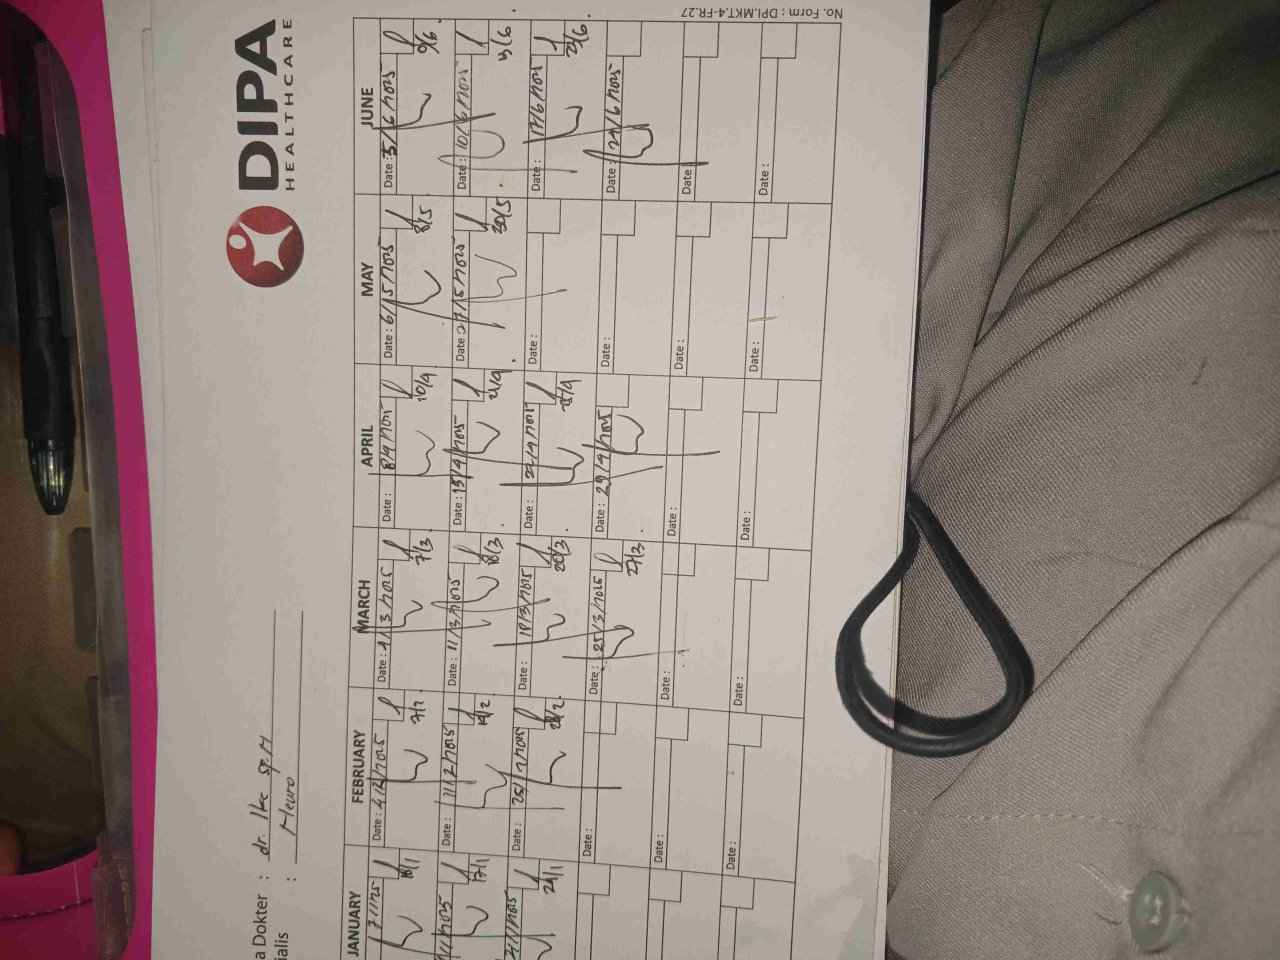 DIPA
HEALTHCARE
a Dokter : dr. Ike sp.M
ialis : Neuro
JANUARY FEBRUARY MARCH APRIL MAY JUNE
Date : 4/2/2025 7/2
Date : 4/3/2025 7/3
Date : 8/4/2025 10/4
Date : 6/5/2025 8/5
Date : 3/6/2025
17/1
Date : 11/2/2025 14/2
Date : 11/3/2025
Date : 15/4/2025
Date : 27/5/2025 30/5
Date : 10/6/2025
21/1/2025 24/1
Date : 25/2/2025 28/2
Date : 18/3/2025 20/3
Date : 22/4/2025
Date :
Date : 17/6/2025
Date :
Date : 25/3/2025 27/3
Date : 29/4/2025
Date :
Date : 24/6/2025
Date :
Date :
Date :
Date :
Date :
Date :
Date :
Date :
Date :
Date :
No. Form : DPI.MKT.4-FR.27